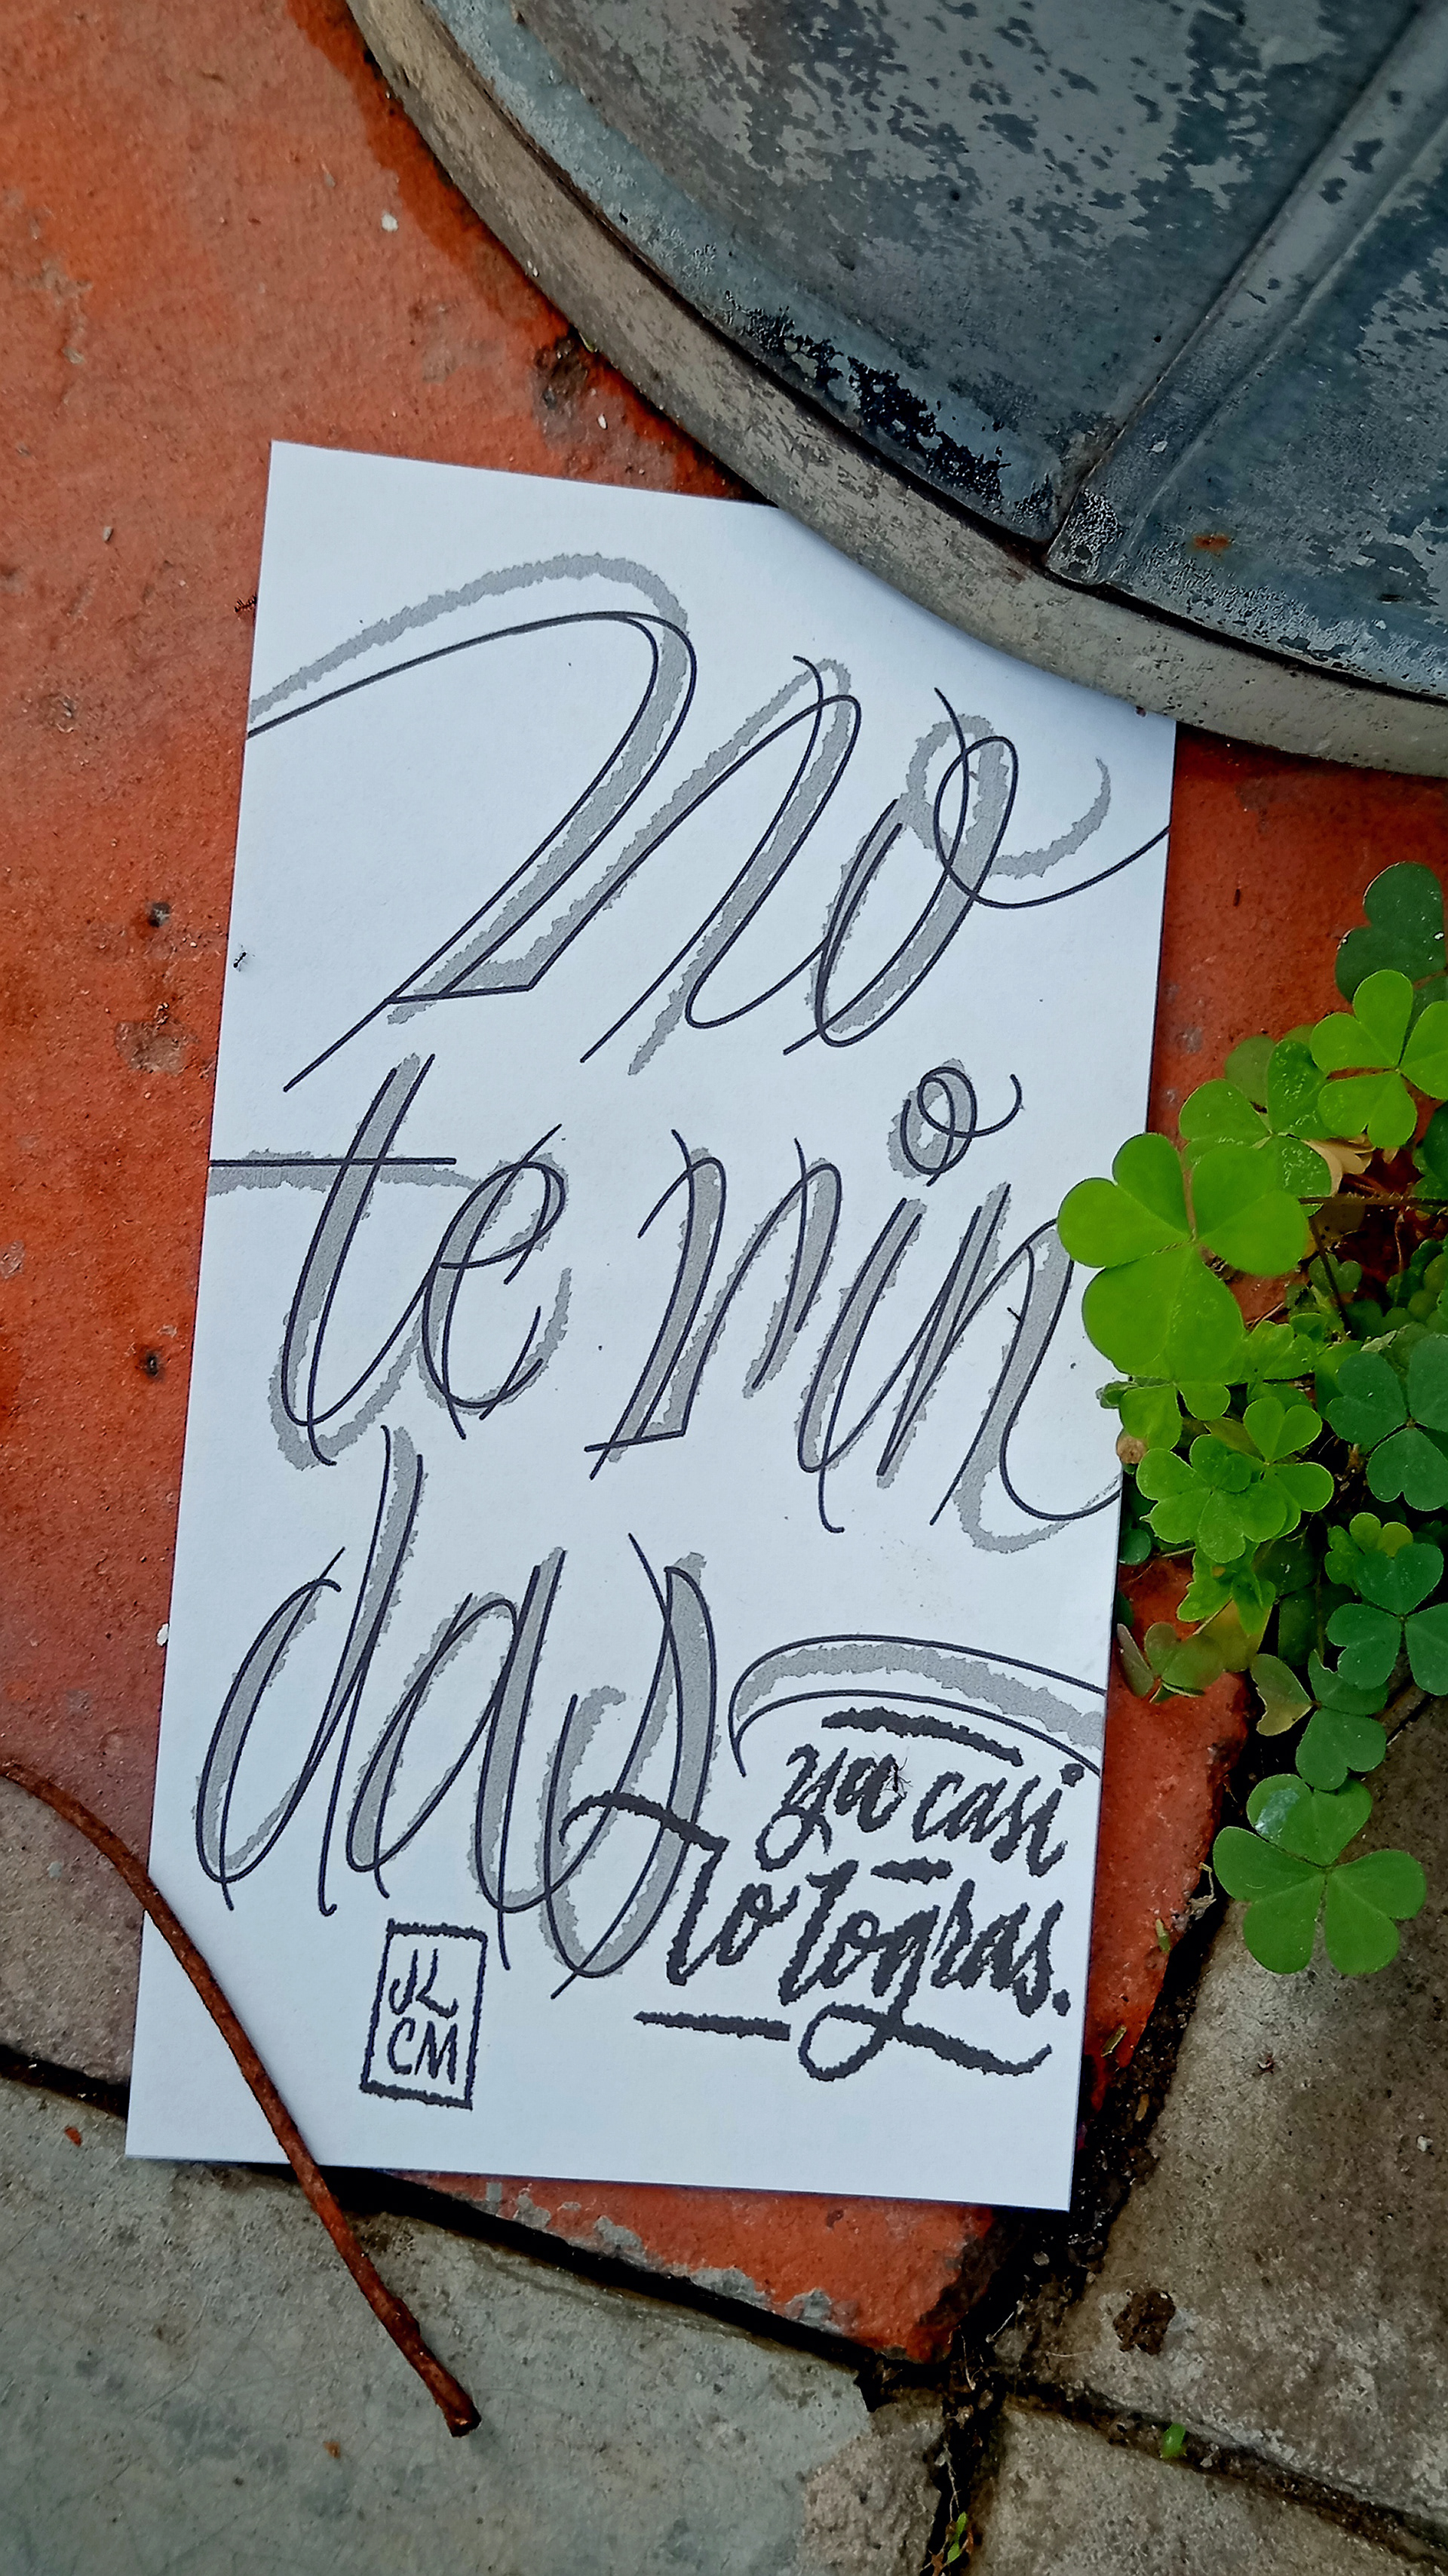 no
te rin
das
ya casi
lo logras.
JL
CM